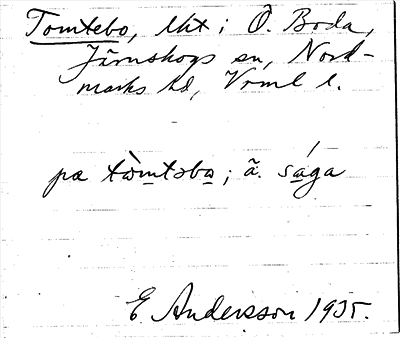 Tomtebo, lht i Ö. Boda,
Järnskogs sn, Nord-
marks hd, Vrml l.
pæ tòmtəbo; ä. sága
E Andersson 1935.